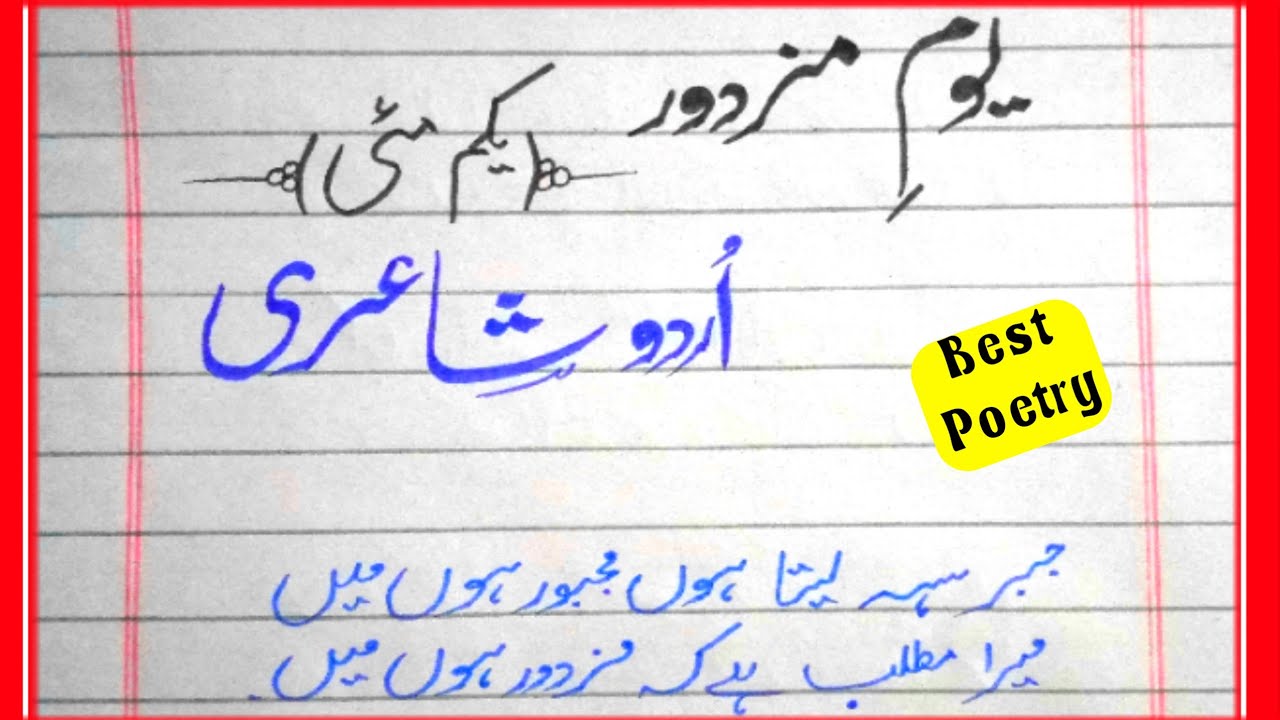 یومِ مزدور
(یکم مئی)
اُردو شاعری
Best
Poetry
جبر سہہ لیتا ہوں مجبور ہوں میں
میرا مطلب ہے کہ مزدور ہوں میں۔